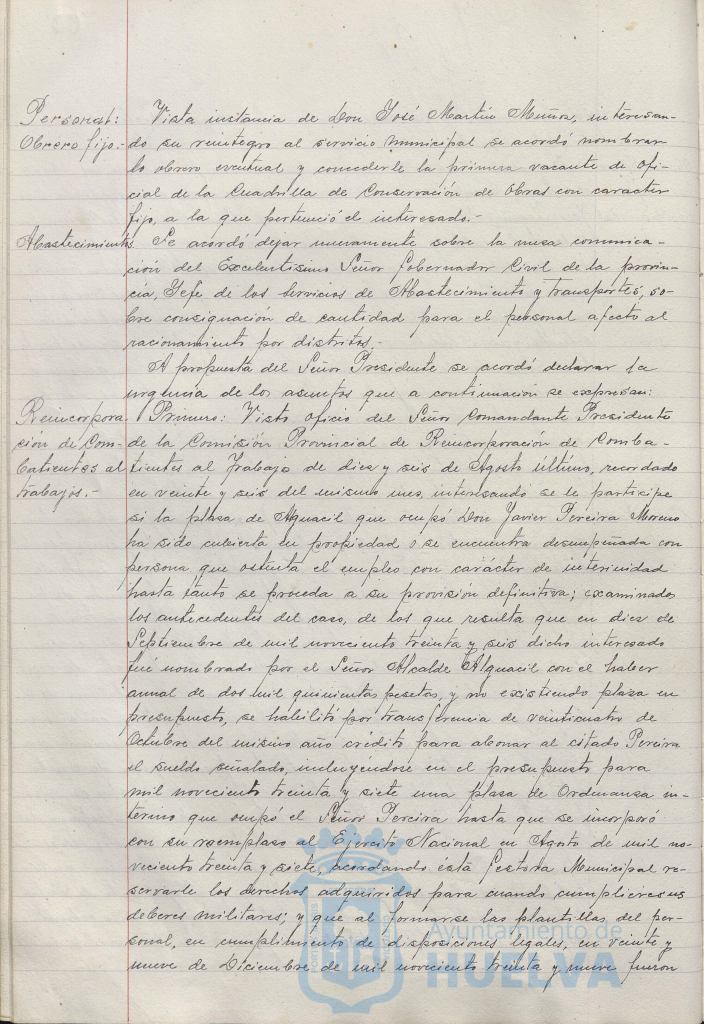 Personal:
Obrero fijo.-
Vista instancia de Don José Martín Muñoz, interesan-
do su reintegro al servicio municipal se acordó nombrar-
lo obrero eventual y concederle la primera vacante de ofi-
cial de la Cuadrilla de Conservación de Obras con caracter
fijo, a la que perteneció el interesado.-
Abastecimientos
Se acordó dejar nuevamente sobre la mesa comunica-
ción del Excelentísimo Señor Gobernador Civil de la provin-
cia, Jefe de los Servicios de Abastecimiento y transportes, so-
bre consignación de cantidad para el personal afecto al
racionamiento por distritos.-
A propuesta del Señor Presidente se acordó declarar la
urgencia de los asuntos que a continuación se expresan:
Reincorpora
ción de Com-
batientes al
trabajos.-
Primero: Visto oficio del Señor Comandante Presidente
de la Comisión Provincial de Reincorporación de Comba-
tientes al Trabajo de diez y seis de Agosto último, recordado
en veinte y seis del mismo mes, interesando se le participe
si la plaza de Alguacil que ocupó Don Javier Pereira Moreno
ha sido cubierta en propiedad o se encuentra desempeñada con
persona que ostenta el empleo con carácter de interinidad
hasta tanto se proceda a su provisión definitiva; examinados
los antecedentes del caso, de los que resulta que en diez de
Septiembre de mil novecientos treinta y seis dicho interesado
fué nombrado por el Señor Alcalde Alguacil con el haber
anual de dos mil quinientas pesetas, y no existiendo plaza en
presupuesto, se habilitó por transferencia de veinticuatro de
Octubre del mismo año crédito para abonar al citado Pereira
el sueldo señalado, incluyéndose en el presupuesto para
mil novecientos treinta y siete una plaza de Ordenanza in-
terino que ocupó el Señor Pereira hasta que se incorporó
con su reemplazo al Ejercito Nacional en Agosto de mil no-
veciento treinta y siete, acordando ésta Gestora Municipal re-
servarle los derechos adquiridos para cuando cumpliere sus
deberes militares; y que al formarse las plantillas del per-
sonal, en cumplimiento de disposiciones legales, en veinte y
nueve de Diciembre de mil noveciento treinta y nueve fueron
Ayuntamiento de
HUELVA